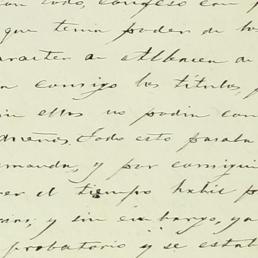 en todo, confeso con p
que tenia poder de los
caracter de albacea de
n consigo los titulos p
sin ellos no podia con
dueños. Todo esto pasaba
emanda, y por consigui
er el tiempo habil p
mas; y sin embargo, ya
probatorio y se estab